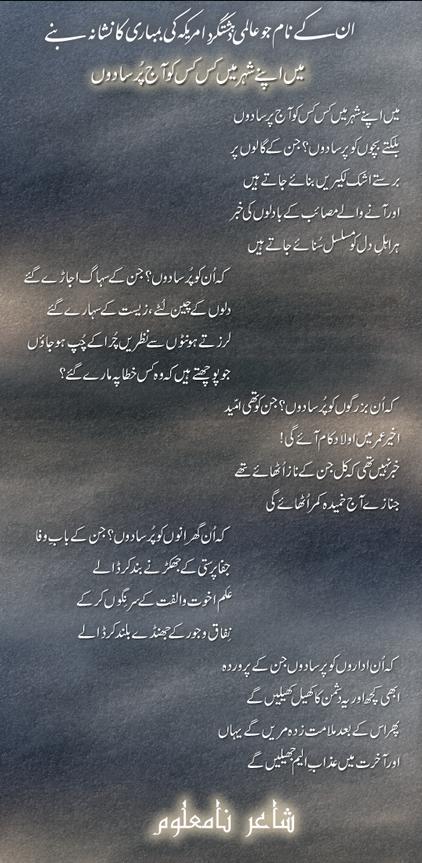 ان کے نام جو عالمی دہشتگرد امریکہ کی بمباری کا نشانہ بنے
میں اپنے شہر میں کس کس کو آج پُرسا دوں
میں اپنے شہر میں کس کس کو آج پرسا دوں
بلکتے بچوں کو پرسا دوں؟ جن کے گالوں پر
برستے اشک لکیریں بنائے جاتے ہیں
اور آنے والے مصائب کے بادلوں کی خبر
ہر اہلِ دل کو مسلسل سُنائے جاتے ہیں
کہ اُن کو پُرسا دوں؟ جن کے سہاگ اجاڑے گئے
دلوں کے چین لُٹے، زیست کے سہارے گئے
لرزتے ہونٹوں سے نظریں چُرا کے چُپ ہو جاؤں
جو پوچھتے ہیں کہ وہ کس خطا پہ مارے گئے؟
کہ اُن بزرگوں کو پُرسا دوں؟ جن کو تھی امّید
اخیر عمر میں اولاد کام آئے گی!
خبر نہیں تھی کہ کل جن کے ناز اُٹھائے تھے
جنازے آج خمیدہ کمر اُٹھائے گی
کہ اُن گھرانوں کو پُرسا دوں؟ جن کے بابِ وفا
جفا پرستی کے جھکڑ نے بند کر ڈالے
عَلم اخوت و الفت کے سرنِگوں کر کے
نِفاق و جور کے جھنڈے بلند کر ڈالے
کہ اُن اداروں کو پرسا دوں جن کے پروردہ
ابھی کچھ اور یہ دشمن کا کھیل کھیلیں گے
پھر اس کے بعد ملامت زدہ مریں گے یہاں
اور آخرت میں عذابِ الیم جھیلیں گے
شاعر نامعلوم